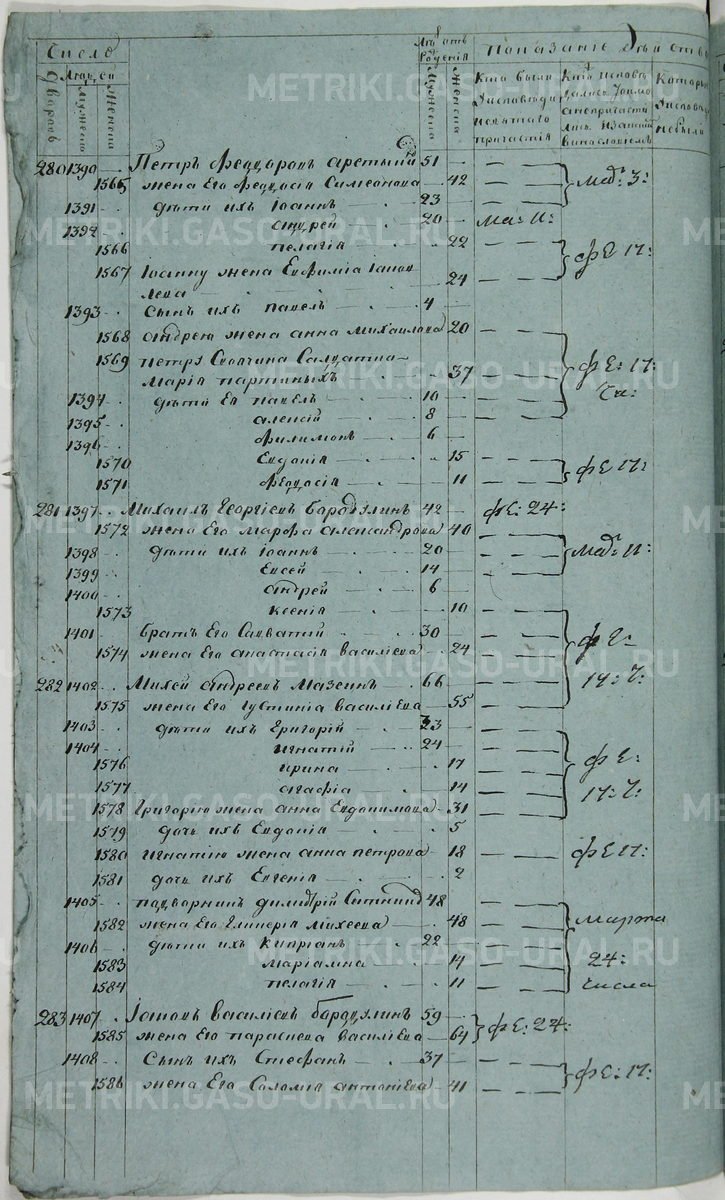 Число
Дворовъ
Людей
Мужеска
Женска
Лѣ
отъ
Рожденія
Мужеска
Женска
Показание
Кто были
Кто испов
280 1390 Петръ Феодоровъ 51
1565 жена Его Феодосія Симеонова 42 Мар: 3:
1391 дѣти ихъ Іоаннъ 23
1392 Андрей 20 Ма: 11:
1566 пелагія 22 фЕ 17:
1567 Іоанну жена Евфимія 24
1393 Сынъ ихъ павелъ 4
1568 Андрею жена анна Михаилова 20
1569 петра
Марія 37 фЕ: 17:
1394 дѣти Ея павелъ 10
1395 алексій 8
1396 Филимонъ 6
1570 Евдокія 15 фЕ 17:
1571 Феодосія 11
281 1397 Михаилъ Георгіевъ Бородулинъ 42 фЕ: 24:
1572 жена Его Марфа александрова 40
1398 дѣти ихъ Іоаннъ 20 Мар: 11:
1399 Евсей 14
1400 Андрей 6
1573 Ксенія 10
1401 братъ Его Савватій 30 фЕ:
1574 жена Его анастасія василіева 24
282 1402 Михей Андреевъ Мазеинъ 66 17: Ч:
1575 жена Его Іустинія василіева 55
1403 дѣти ихъ Григорій 33
1404 игнатій 24
1576 ирина 17 фЕ:
1577 агафія 14 17: Ч:
1578 Григорію жена анна Евдокимова 31
1579 дочь ихъ Евдокія 5
1580 игнатію жена анна петрова 18 фЕ 17:
1581 дочь ихъ Евгенія 2
1405 подворникъ димитрій 48
1582 жена Его Гликерія Михеева 48 Марта
1406 дѣти ихъ Кипріанъ 22
1583 Маріамна 14 24:
1584 пелагія 11 числа
283 1407 Іаковъ Василіевъ Бородулинъ 59
1585 жена Его параскева василіева 64 фЕ: 24:
1408 Сынъ ихъ Стефанъ 37
1586 жена Его Саломія антоніева 41 фЕ: 17:
METRIKI.GASO-URAL.RU